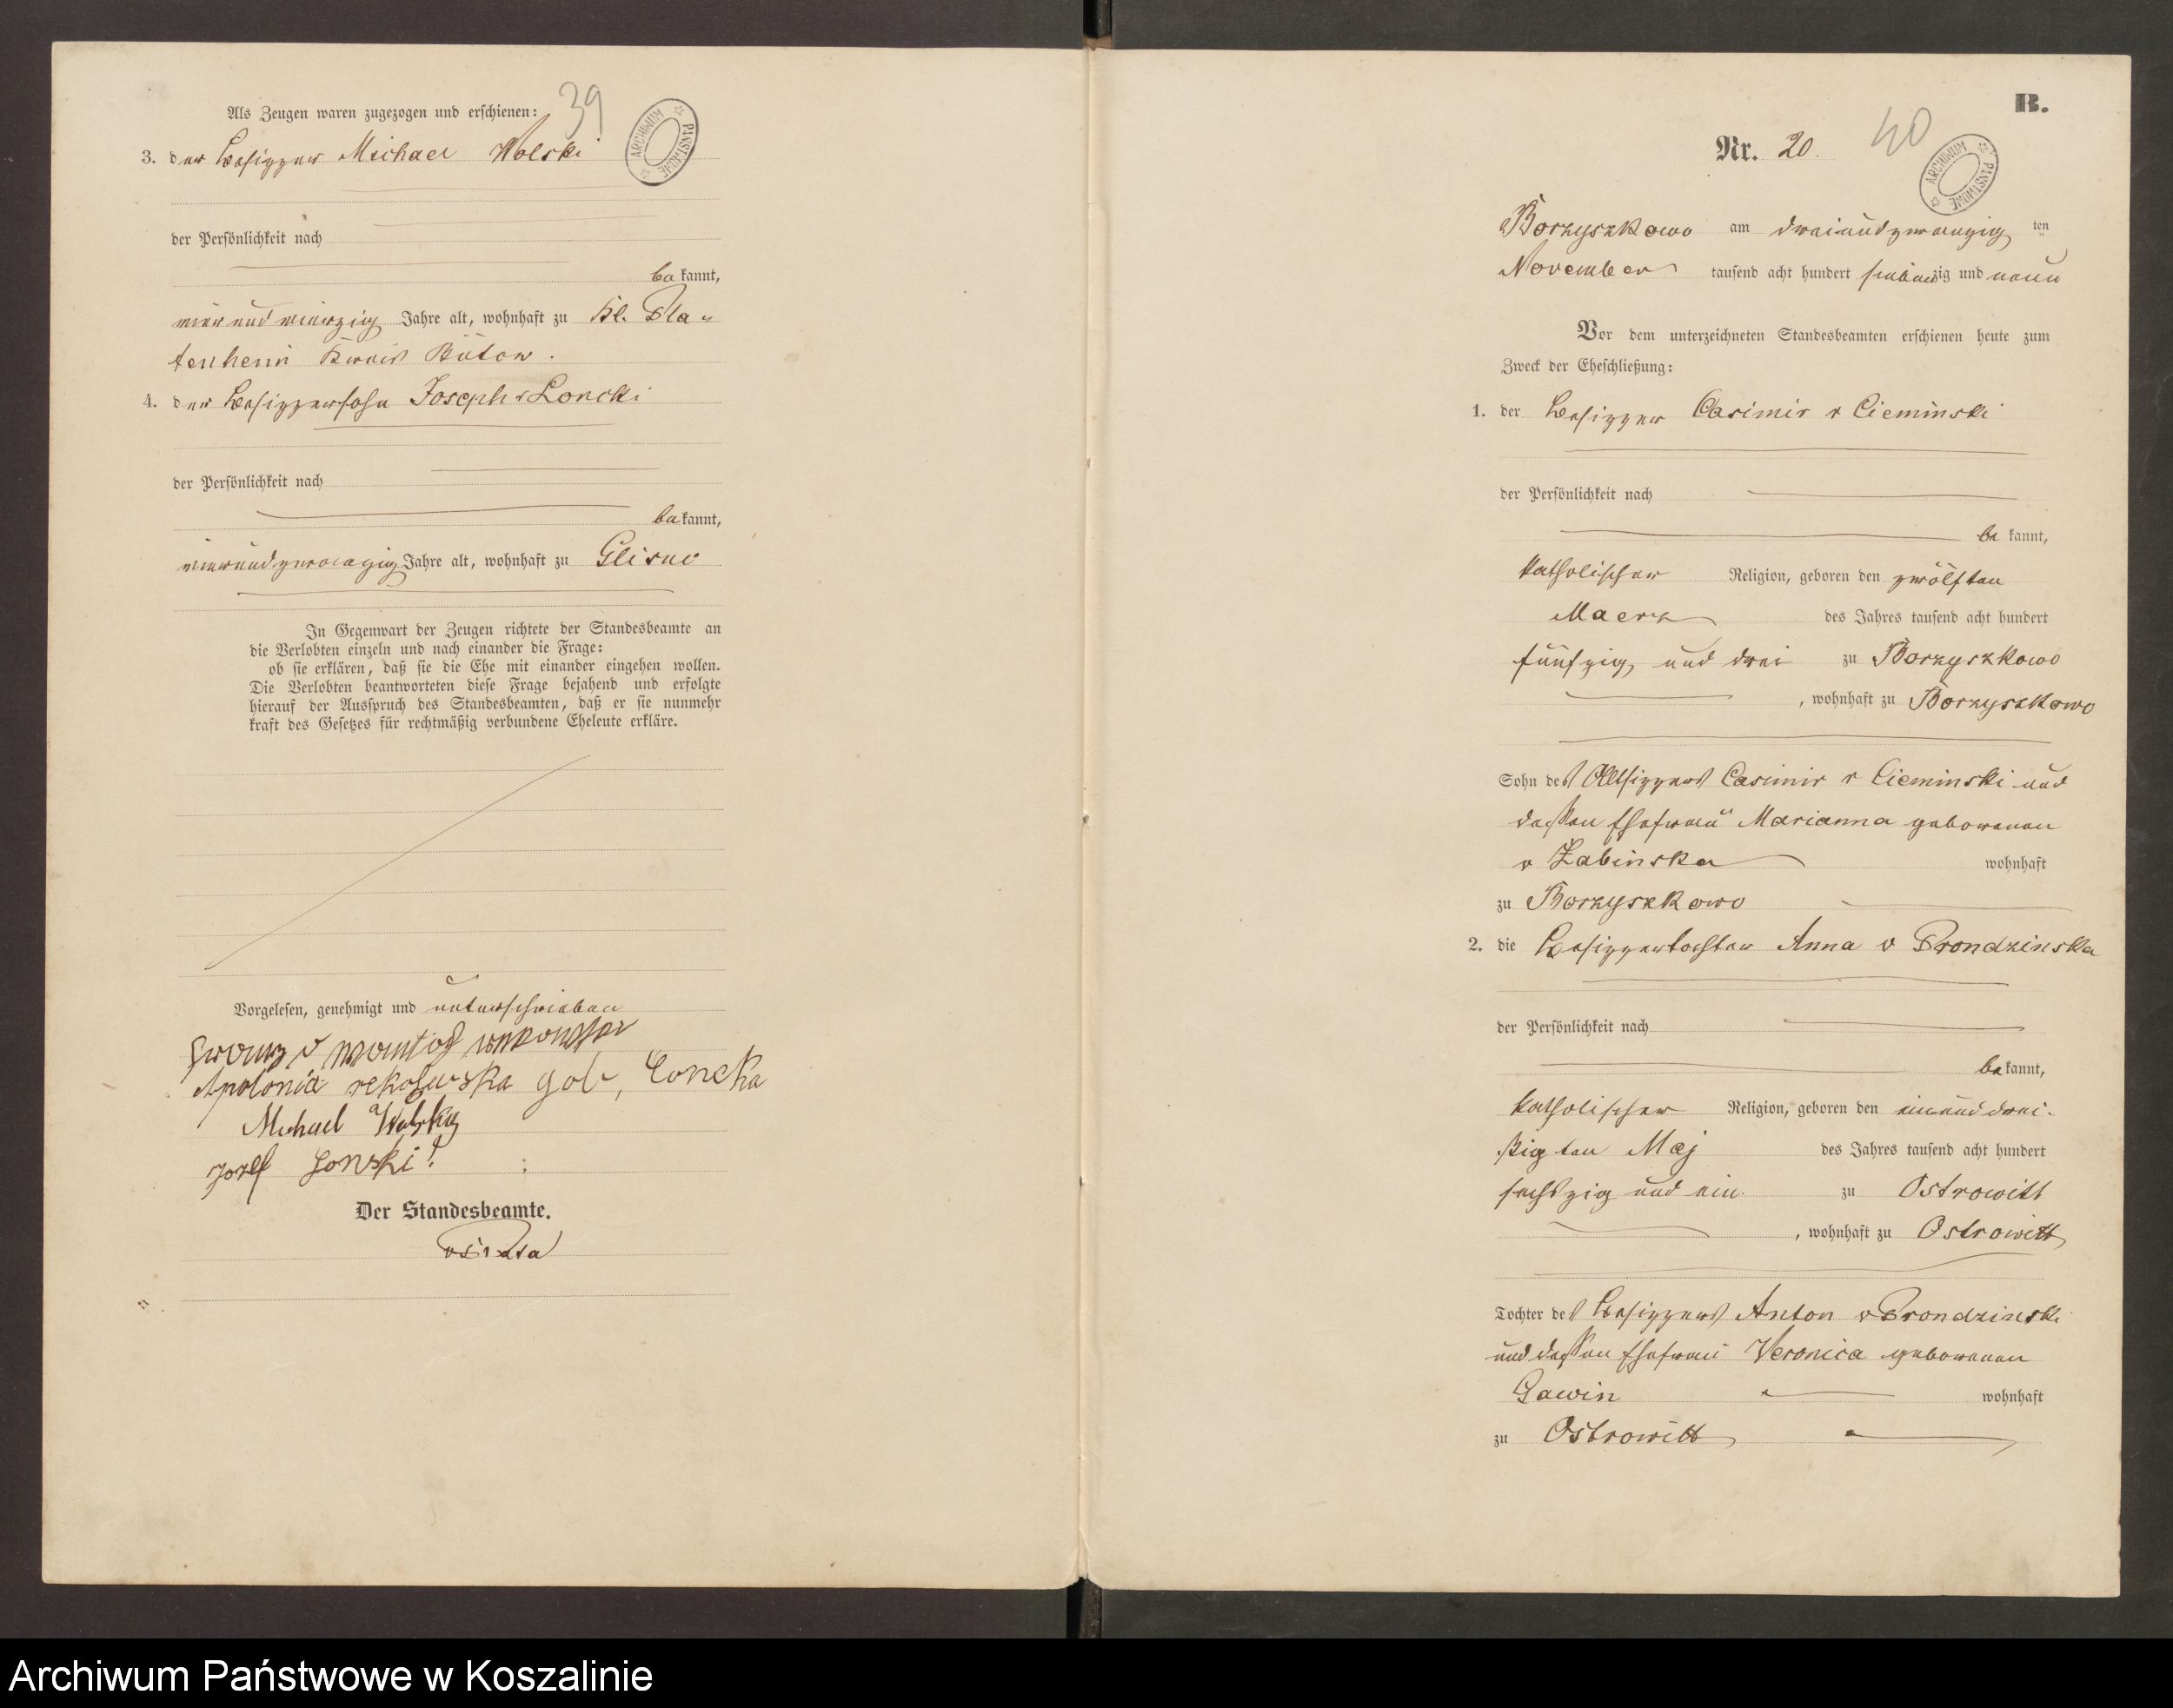 39
Als Zeugen waren zugezogen und erschienen:
3. der Besitzer Michael Wolski
ARCHIWUM PAŃSTWOWE
der Persönlichkeit nach
bekannt,
vierundvierzig Jahre alt, wohnhaft zu Kl. Pla-
tenheim Kreis Bütow.
4. der Besitzersohn Joseph v Loncki
der Persönlichkeit nach
bekannt,
vierundzwanzig Jahre alt, wohnhaft zu Glisno
In Gegenwart der Zeugen richtete der Standesbeamte an
die Verlobten einzeln und nach einander die Frage:
ob sie erklären, daß sie die Ehe mit einander eingehen wollen.
Die Verlobten beantworteten diese Frage bejahend und erfolgte
hierauf der Ausspruch des Standesbeamten, daß er sie nunmehr
kraft des Gesetzes für rechtmäßig verbundene Eheleute erkläre.
Vorgelesen, genehmigt und unterschrieben
Franz v
Apolonia geb, Loncka
Michael Wolsky
Jozef Lonski
Der Standesbeamte.
B.
Nr. 20. 40
ARCHIWUM PAŃSTWOWE
Borzyszkowo am dreiundzwanzig ten
November tausend acht hundert siebenzig und neun
Vor dem unterzeichneten Standesbeamten erschienen heute zum
Zweck der Eheschließung:
1. der Besitzer Casimir v Cieminski
der Persönlichkeit nach
bekannt,
katholischer Religion, geboren den zwölften
Maerz des Jahres tausend acht hundert
fünfzig und drei zu Borzyszkowo
, wohnhaft zu Borzyszkowo
Sohn des Altsitzers Casimir v Cieminski und
dessen Ehefrau Marianna geborenen
v Zabinska wohnhaft
zu Borzyszkowo
2. die Besitzertochter Anna v Prondzinska
der Persönlichkeit nach
bekannt,
katholischer Religion, geboren den einunddrei-
ßigten Maj des Jahres tausend acht hundert
sechszig und ein zu Ostrowitt
, wohnhaft zu Ostrowitt
Tochter des Besitzers Anton v Prondzinski
und dessen Ehefrau Veronica geborenen
Gawin wohnhaft
zu Ostrowitt
Archiwum Państwowe w Koszalinie